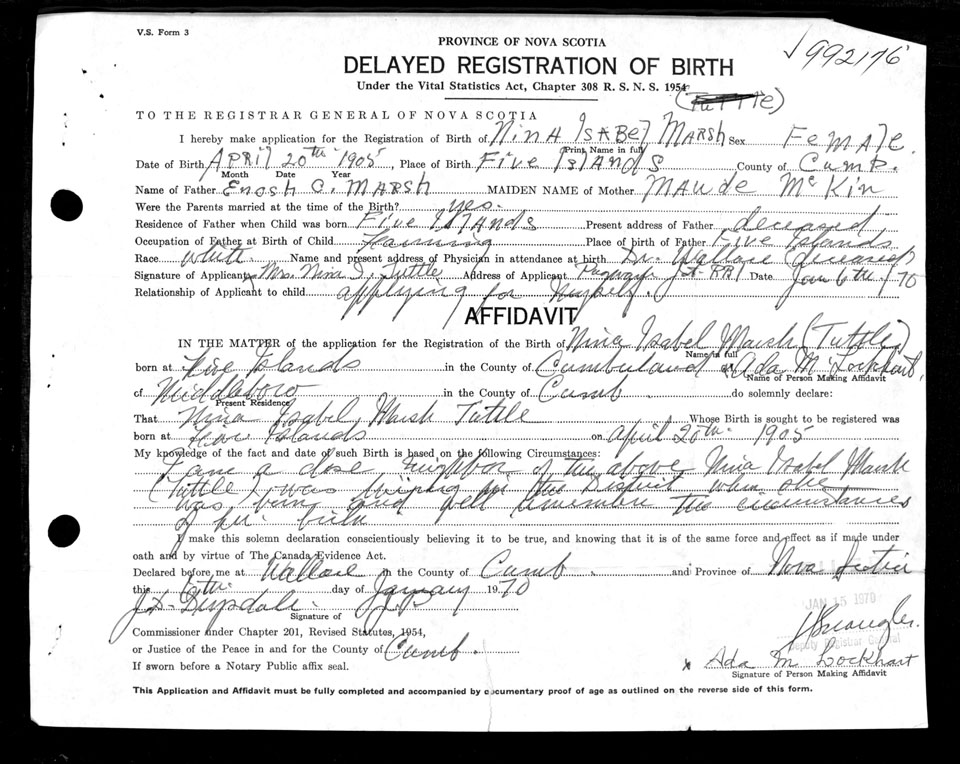 V.S. Form 3
PROVINCE OF NOVA SCOTIA
√992176
DELAYED REGISTRATION OF BIRTH
Under the Vital Statistics Act, Chapter 308 R. S. N. S. 1954
(TuTTle)
TO THE REGISTRAR GENERAL OF NOVA SCOTIA
I hereby make application for the Registration of Birth of NinA IsABel MARsh Sex FemAle.
Print Name in full
Date of Birth APRil 20th 1905, Place of Birth Five IslAndS County of Cump.
Month Date Year
Name of Father Enosh C. MARSH MAIDEN NAME of Mother MAude McKin
Were the Parents married at the time of the Birth? yes.
Residence of Father when Child was born Five IslAndS Present address of Father deceased
Occupation of Father at Birth of Child Farming Place of birth of Father Five Islands
Race white Name and present address of Physician in attendance at birth Dr. Wallace (deceased)
Signature of Applicant x Mrs. Nina I. Tuttle Address of Applicant Pugwash Jct RR1 Date Jan 6th /70
Relationship of Applicant to child applying for myself.
AFFIDAVIT
IN THE MATTER of the application for the Registration of the Birth of Nina Isabel Marsh (Tuttle)
Name in full
born at Five Islands in the County of Cumberland Ada M Lockhart,
Name of Person Making Affidavit
of Middleboro in the County of Cumb. do solemnly declare:
Present Residence
That Nina Isabel Marsh Tuttle Whose Birth is sought to be registered was
born at Five Islands on April 20th 1905
My knowledge of the fact and date of such Birth is based on the following Circumstances:
I am a close neighbor of the above Nina Isabel Marsh
(Tuttle) was living in the District when she
was born and well remember the circumstances
of her birth
I make this solemn declaration conscientiously believing it to be true, and knowing that it is of the same force and effect as if made under
oath and by virtue of The Canada Evidence Act.
Declared before me at Wallace in the County of Cumb. and Province of Nova Scotia
this 6th day of January 1970
JAN 15 1970
Signature of
Commissioner under Chapter 201, Revised Statutes, 1954,
Deputy Registrar General
or Justice of the Peace in and for the County of Cumb.
If sworn before a Notary Public affix seal.
x Ada M Lockhart
Signature of Person Making Affidavit
This Application and Affidavit must be fully completed and accompanied by documentary proof of age as outlined on the reverse side of this form.